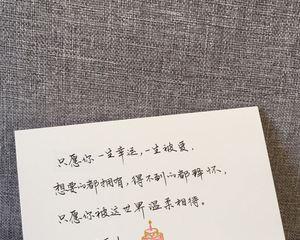 只愿你一生幸运，一生被爱，
想要的都拥有，得不到的都释怀，
只愿你被这世界温柔相待。